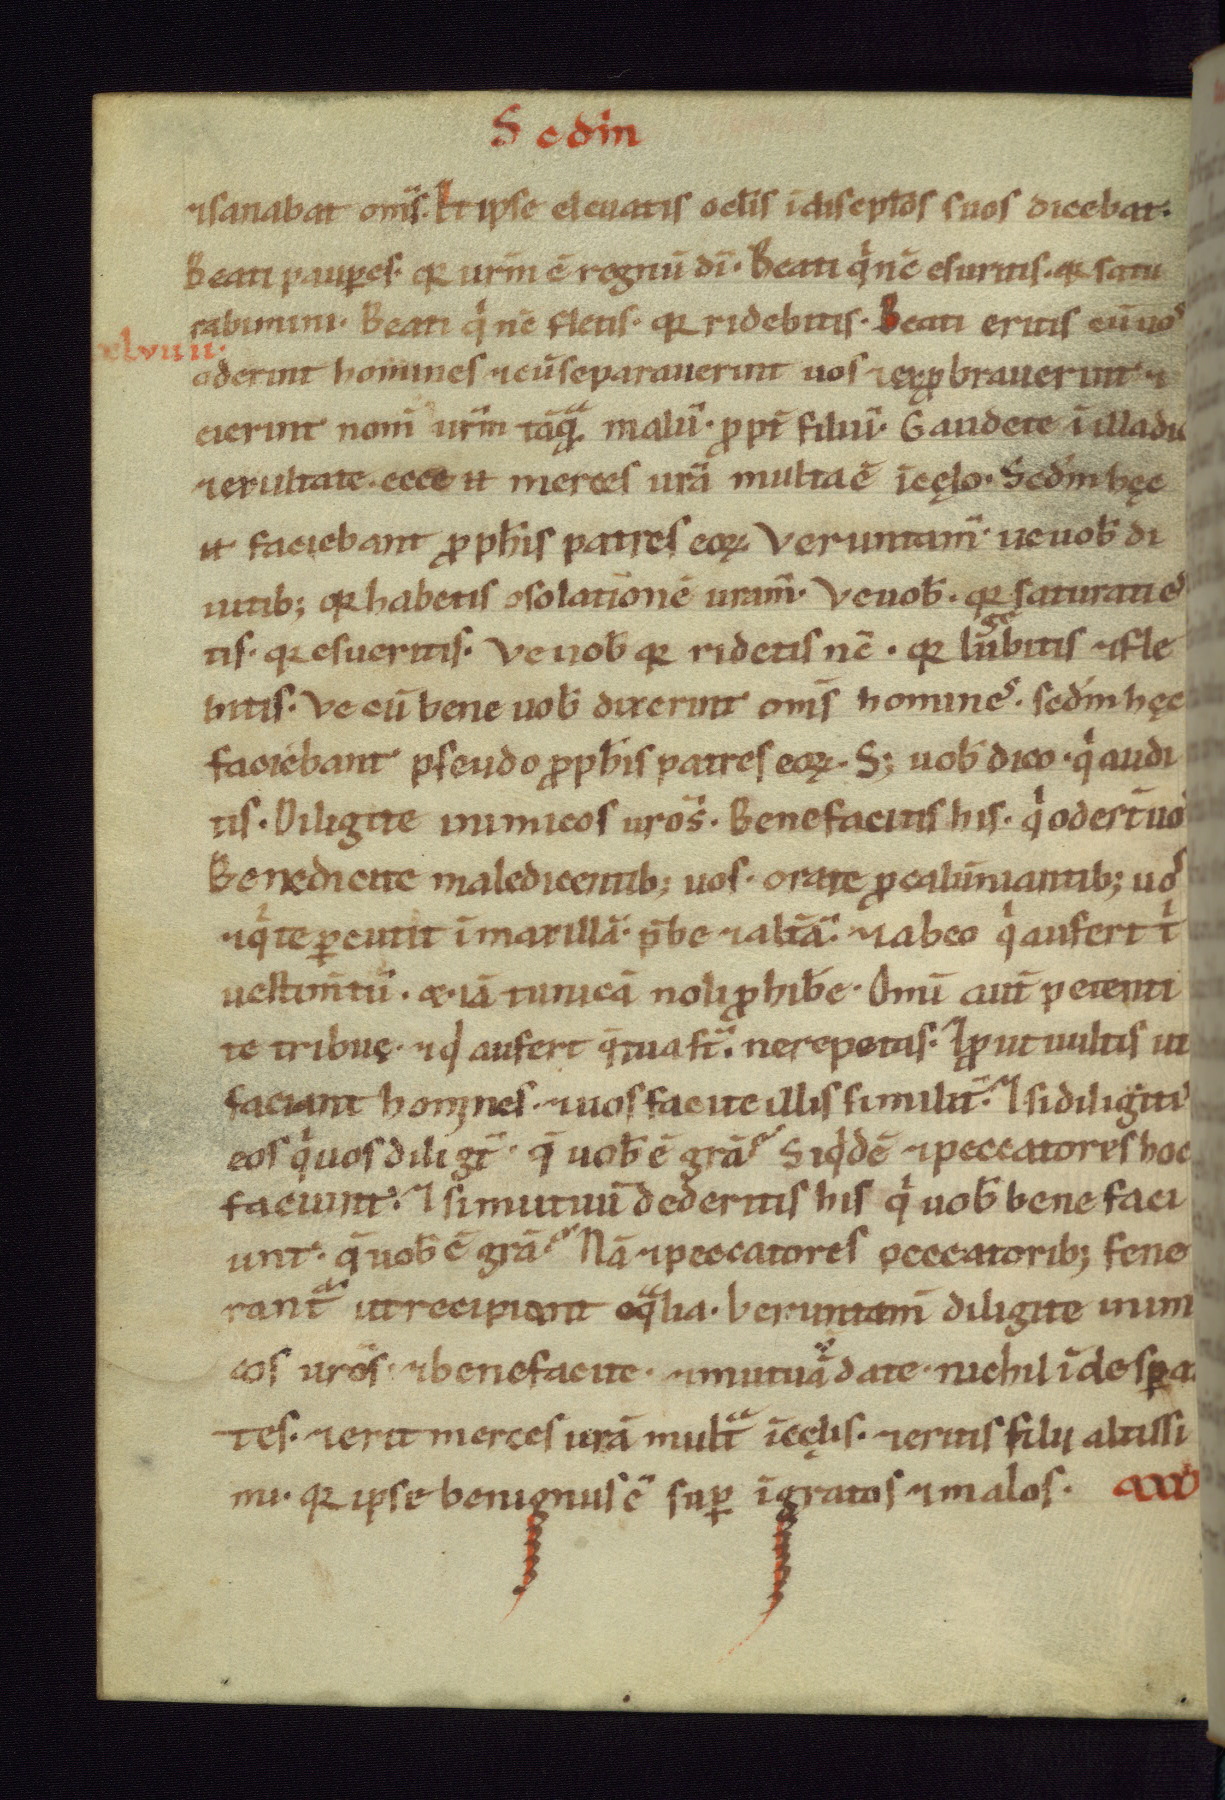 Sedm
⁊sanabat om̅s. Et ipse eleuatis oclis̅ i̅discpl̅os suos dicebat.
Beati paup̲es. qꝛ urm̅ e̅ regnu̅ di̅. Beati qi ne̅ esuritis. qꝛ satu
rabimini. Beati qi ne̅ fletis. qꝛ ridebitis. Beati eritis cu̅ uos
xlviiii.
oderint homines ⁊cu̅ separauerint uos ⁊exꝓbrauerint ⁊
eierint nom̅ urm̅ ta̅q̅ malu̅. ꝓpt̅ filiu̅. Gaudete i̅ illadie
⁊exultate. ecce n̅ merces ura̅ multae̅ i̅cęlo. Sedm hęc
n̅ faciebant ꝓphis̅ patres eoꝝ. Veruntam̅ ue uob̅ di
uitib; qꝛ habetis ↄsolatione̅ uram̅. Ve uob̅. qꝛ saturati es
tis. qꝛ esurietis. Ve uob̅ qꝛ ridetis ne̅. qꝛ lugebitis ⁊fle
bitis. Ve cu̅ bene uob̅ dixerint om̅s homines. sedm hęc
faciebant pseudo ꝓphis̅ patres eoꝝ. S; uob̅ dico. qi audi
tis. Diligite inimicos uros̅. Benefacitis his. qi oder̅t uos
Benedicite maledicentib; uos. orate ꝓcalu̅niantib; uos
⁊qi te p̲cutit i̅ maxilla̅. p̅be ⁊alta̅. ⁊abeo qi aufert ti
uestim̅tu̅. & ia̅ tunica̅ noli ꝓhib̅e. Omi̅ aut̅ petenti
te tribuę. ⁊qi aufert q̅ tua st̅. ne repetas. ⁊ ꝓut uultis ut
faciant homines. ⁊uos facite illis similit̅. ⁊ si diligitis
eos qi uos diligt̅. q̅ uob̅ e̅ gra̅ Siqide̅ ⁊peccatores hoc
faciunt. ⁊ si mutuu̅ dederitis his qi uob̅ bene faci
unt. q̅ uob̅ e̅ gra̅ Na̅ ⁊peccatores peccatorib; fene
rant̅ ut recipiant eq̅lia. Veruntam̅ diligite inimi
cos uros̅. ⁊benefacite. ⁊mutuu̅ date. nichil i̅de sp̲a
tes. ⁊erit merces ura̅ mult̅ i̅cęlis. ⁊eritis filij altissi
mi. qꝛ ipse benignus e̅ sup̲ i̅gratos ⁊malos.